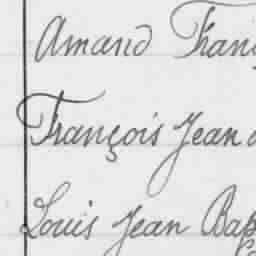 Amand Fran
François Jean
Louis Jean Bap